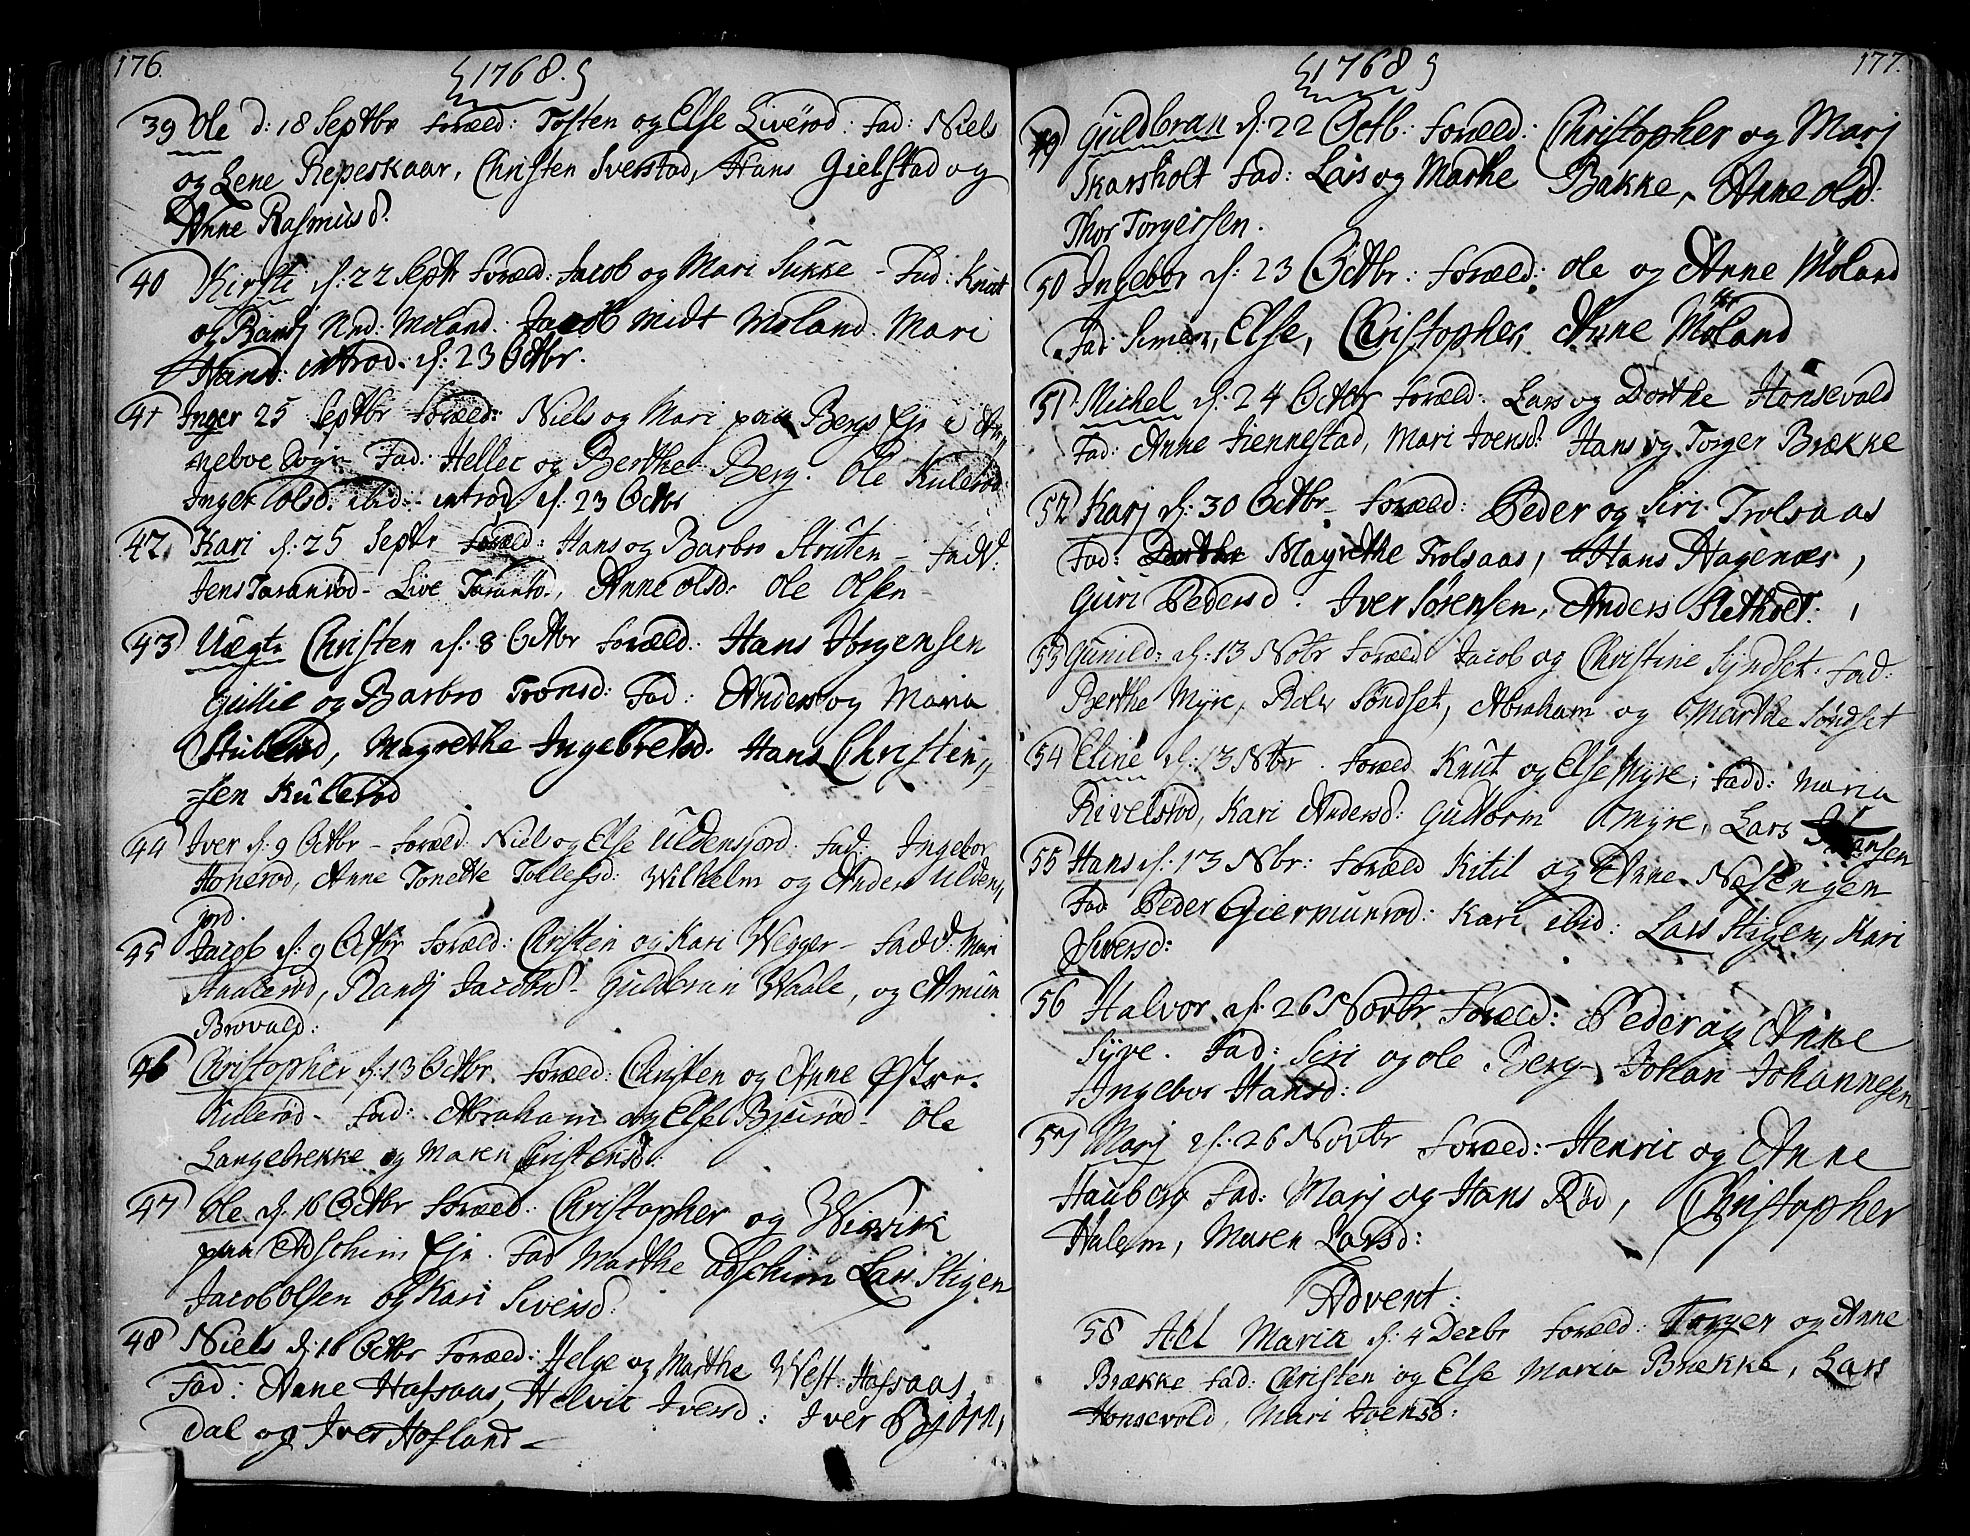 176.
1768.
39 Ole d: 18 Septbr Foræld: Tosten og Else Liverød. Fad: Niels
og Lene Repeskaar, Christen Sverstad, Hans Gielstad og
Anne Rasmusd.
40 Kirsti d: 22 Septr Foræld: Jacob og Mari Sukke - Fad: Knut
og Randj Ned: Moland. Jacob midt Moland. Mari
Hansd: introd: d: 23 Octbr.
41 Inger 25 Septbr Foræld: Niels og Mari paa Bergs Ejr i
neboe Sogn Fad: Hellec og Berthe Berg. Ole Kulerød
Inger Tolsd: ibid: - introd d: 23 Octbr
42. Kari d: 25 Septr Foræld: Hans og Barbro Struten - Fadd:
Jens Taranrød - Live Taranrød, Anne Olsd. Ole Olsen -
43 Uægte Christen d: 8 Octbr Foræld: Hans Jørgensen
Gullie og Barbro Tronsd: Fad: Anders og Maria
Stulerød, Magrethe Ingebretsd: Hans Christen,,
=sen Kulerød
44 Iver d: 9 Octbr - Foræld Niels og Else Uldensjord. Fad: Ingebor
Honerød, Anne Tonette Tollefsd: Wilhelm og Anders Ulden,,
jord.
45 Jacob d: 9 Octbr Foræld: Christen og Kari Wegger - Fadd: Mari
Aalerød, Randj Jacobsd - Guldbran Waale, og Amun
Brovald:
46 Christopher d: 13 Octbr. Foræld: Christen og Anne Østre-
Kulerød - Fad: Abraham og Else Bjeirød - Ole
Langebrekke og Maren Christensd:
47 Ole d: 16 Octbr Foræld: Christopher og Wiwik
paa Adschim Ejr. Fad Marthe Adschim Lars Stigen
Jacob Olsen og Kari Siversd:
48 Niels d: 16 Octbr Foræld: Helge og Marthe West: Hafsaas,
Fad: Anne Hafsaas, Helvic Iversd: Iver Bjørn,
dal og Iver Hofland -
177.
1768
49 Guldbran d: 22 Octb: Foræld: Christopher og Marj
Skarsholt Fad: Lars og Marthe Bakke, Anne Olsd:
Thor Torgersen.
50 Ingebor d: 23 Octbr: Foræld: Ole og Anne Moland
Fad: Simen, Else, Christopher, Anne Moland
51 Michel d: 24 Octbr Foræld: Lars og Dorthe Honsevald
Fad: Anne Fiennestad, Mari Joensd: Hans og Torger Brække
52 Karj d: 30 Octbr - Foræld: Peder og Siri Trolsaas
Fad: Magrethe Trolsaas, Hans Hagenæs,
Guri Pedersd. Iver Sørensen, Anders Sletholt:
53 Gunild: d: 13 Nobr Foræld Jacob og Christine Syndset. Fad:
Berthe Myre, Peder Søndset, Abraham og Marthe Søndset
54 Eline d: 13 Nbr. Foræld Knut og Else Myre, Fadd: Maria
Rivelsrød, Kari Andersd: Gutorm Myre, Lars Hansen
55 Hans d: 13 Nbr: Foræld Kitil og Anne Næsengen
Fad Peder Giermunrød: Kari ibid: Lars Stigen, Kari
Siversd:
56 Halvor d: 26 Novbr Foræld: Peder og Anne
Syve. Fad: Siri og Ole Berg - Johan Johannesen -
Ingebor Hansd:
57 Marj d: 26 Novbr Foræld: Henric og Anne
Hauberg Fad: Marj og Hans Rød, Christopher
Halem, Maren Larsd:
Advent:
58 Axl Maria d: 4 Decbr Foræld: Torger og Anne
Brække Fad: Christen og Else Maria Brække, Lars
Honsevold, Mari Joensd: